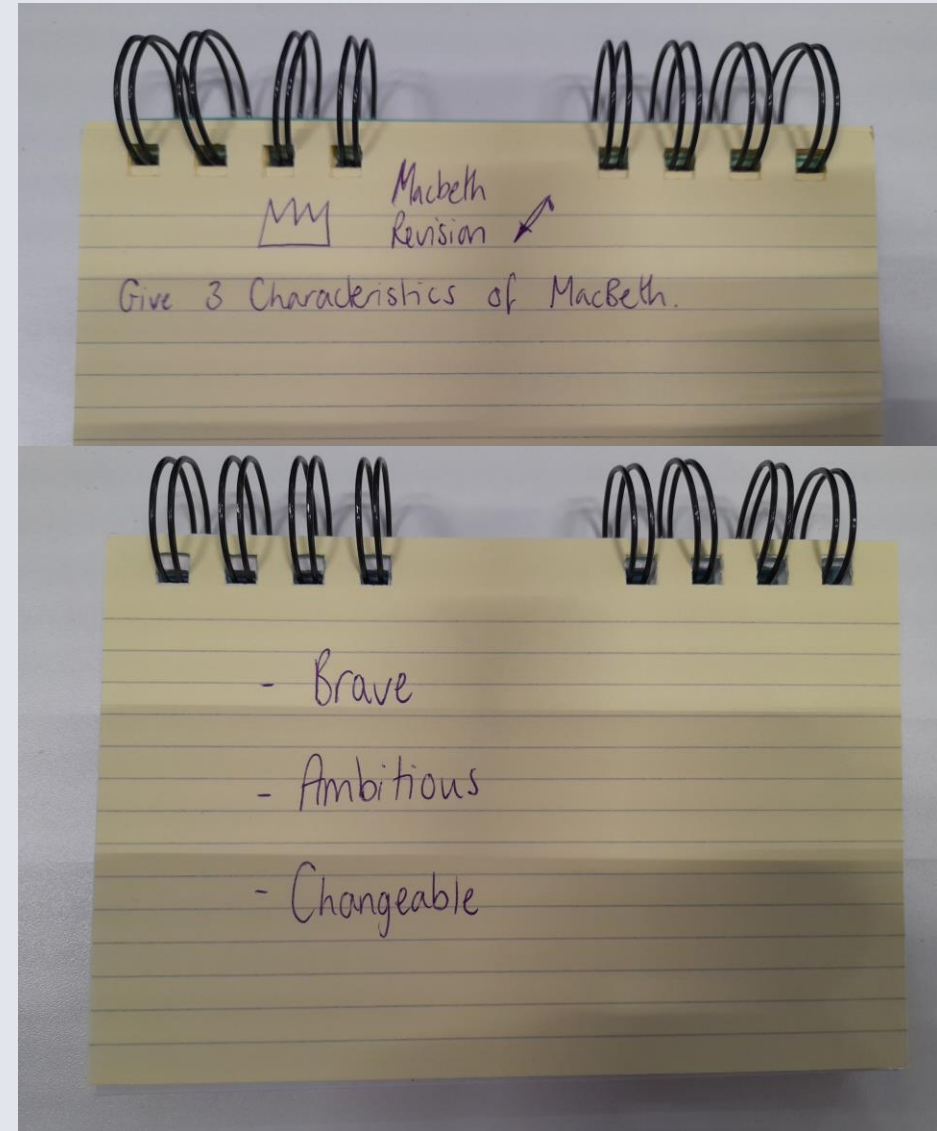 Macbeth
Revision
Give 3 Characteristics of MacBeth.
- Brave
- Ambitious
- Changeable